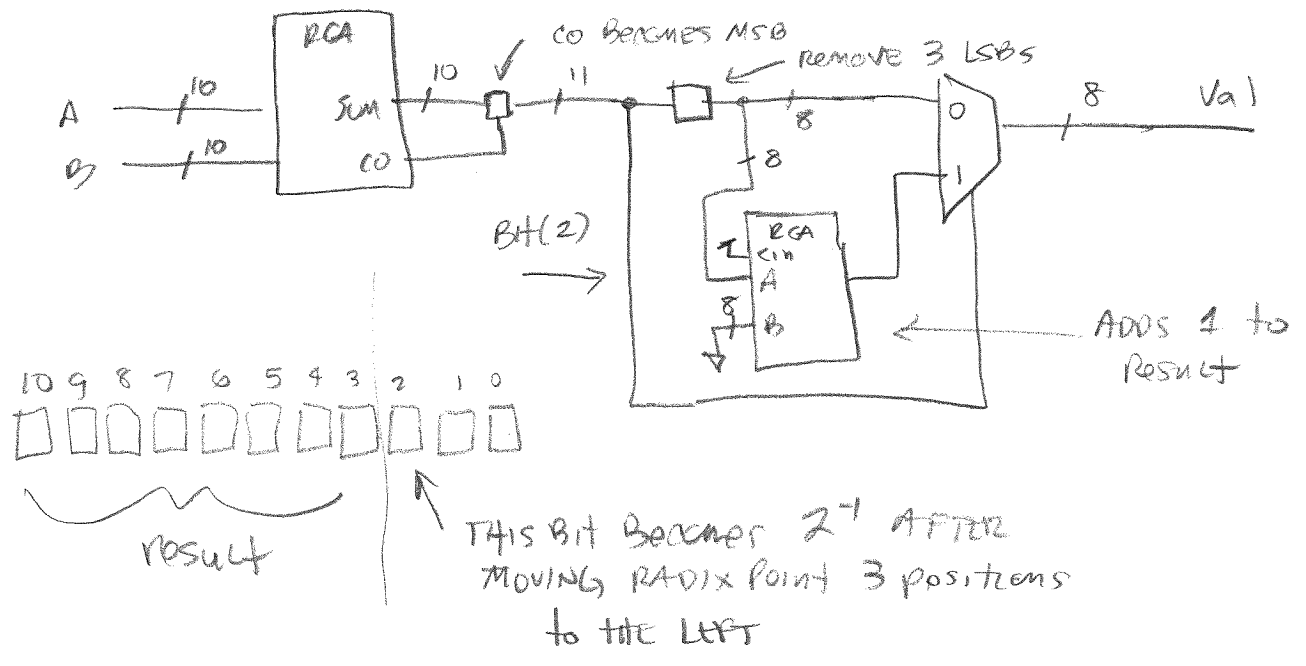 RCA
CO BECOMES MSB
REMOVE 3 LSBs
10
10
11
8
8
Val
A
10
SUM
0
B
10
CO
8
1
BIT(2)
RCA
1
Cin
A
8
B
ADDS 1 to
Result
10 9 8 7 6 5 4 3 2 1 0
result
THIS BIT BECOMES 2⁻¹ AFTER
MOVING RADIX POINT 3 positions
to THE LEFT